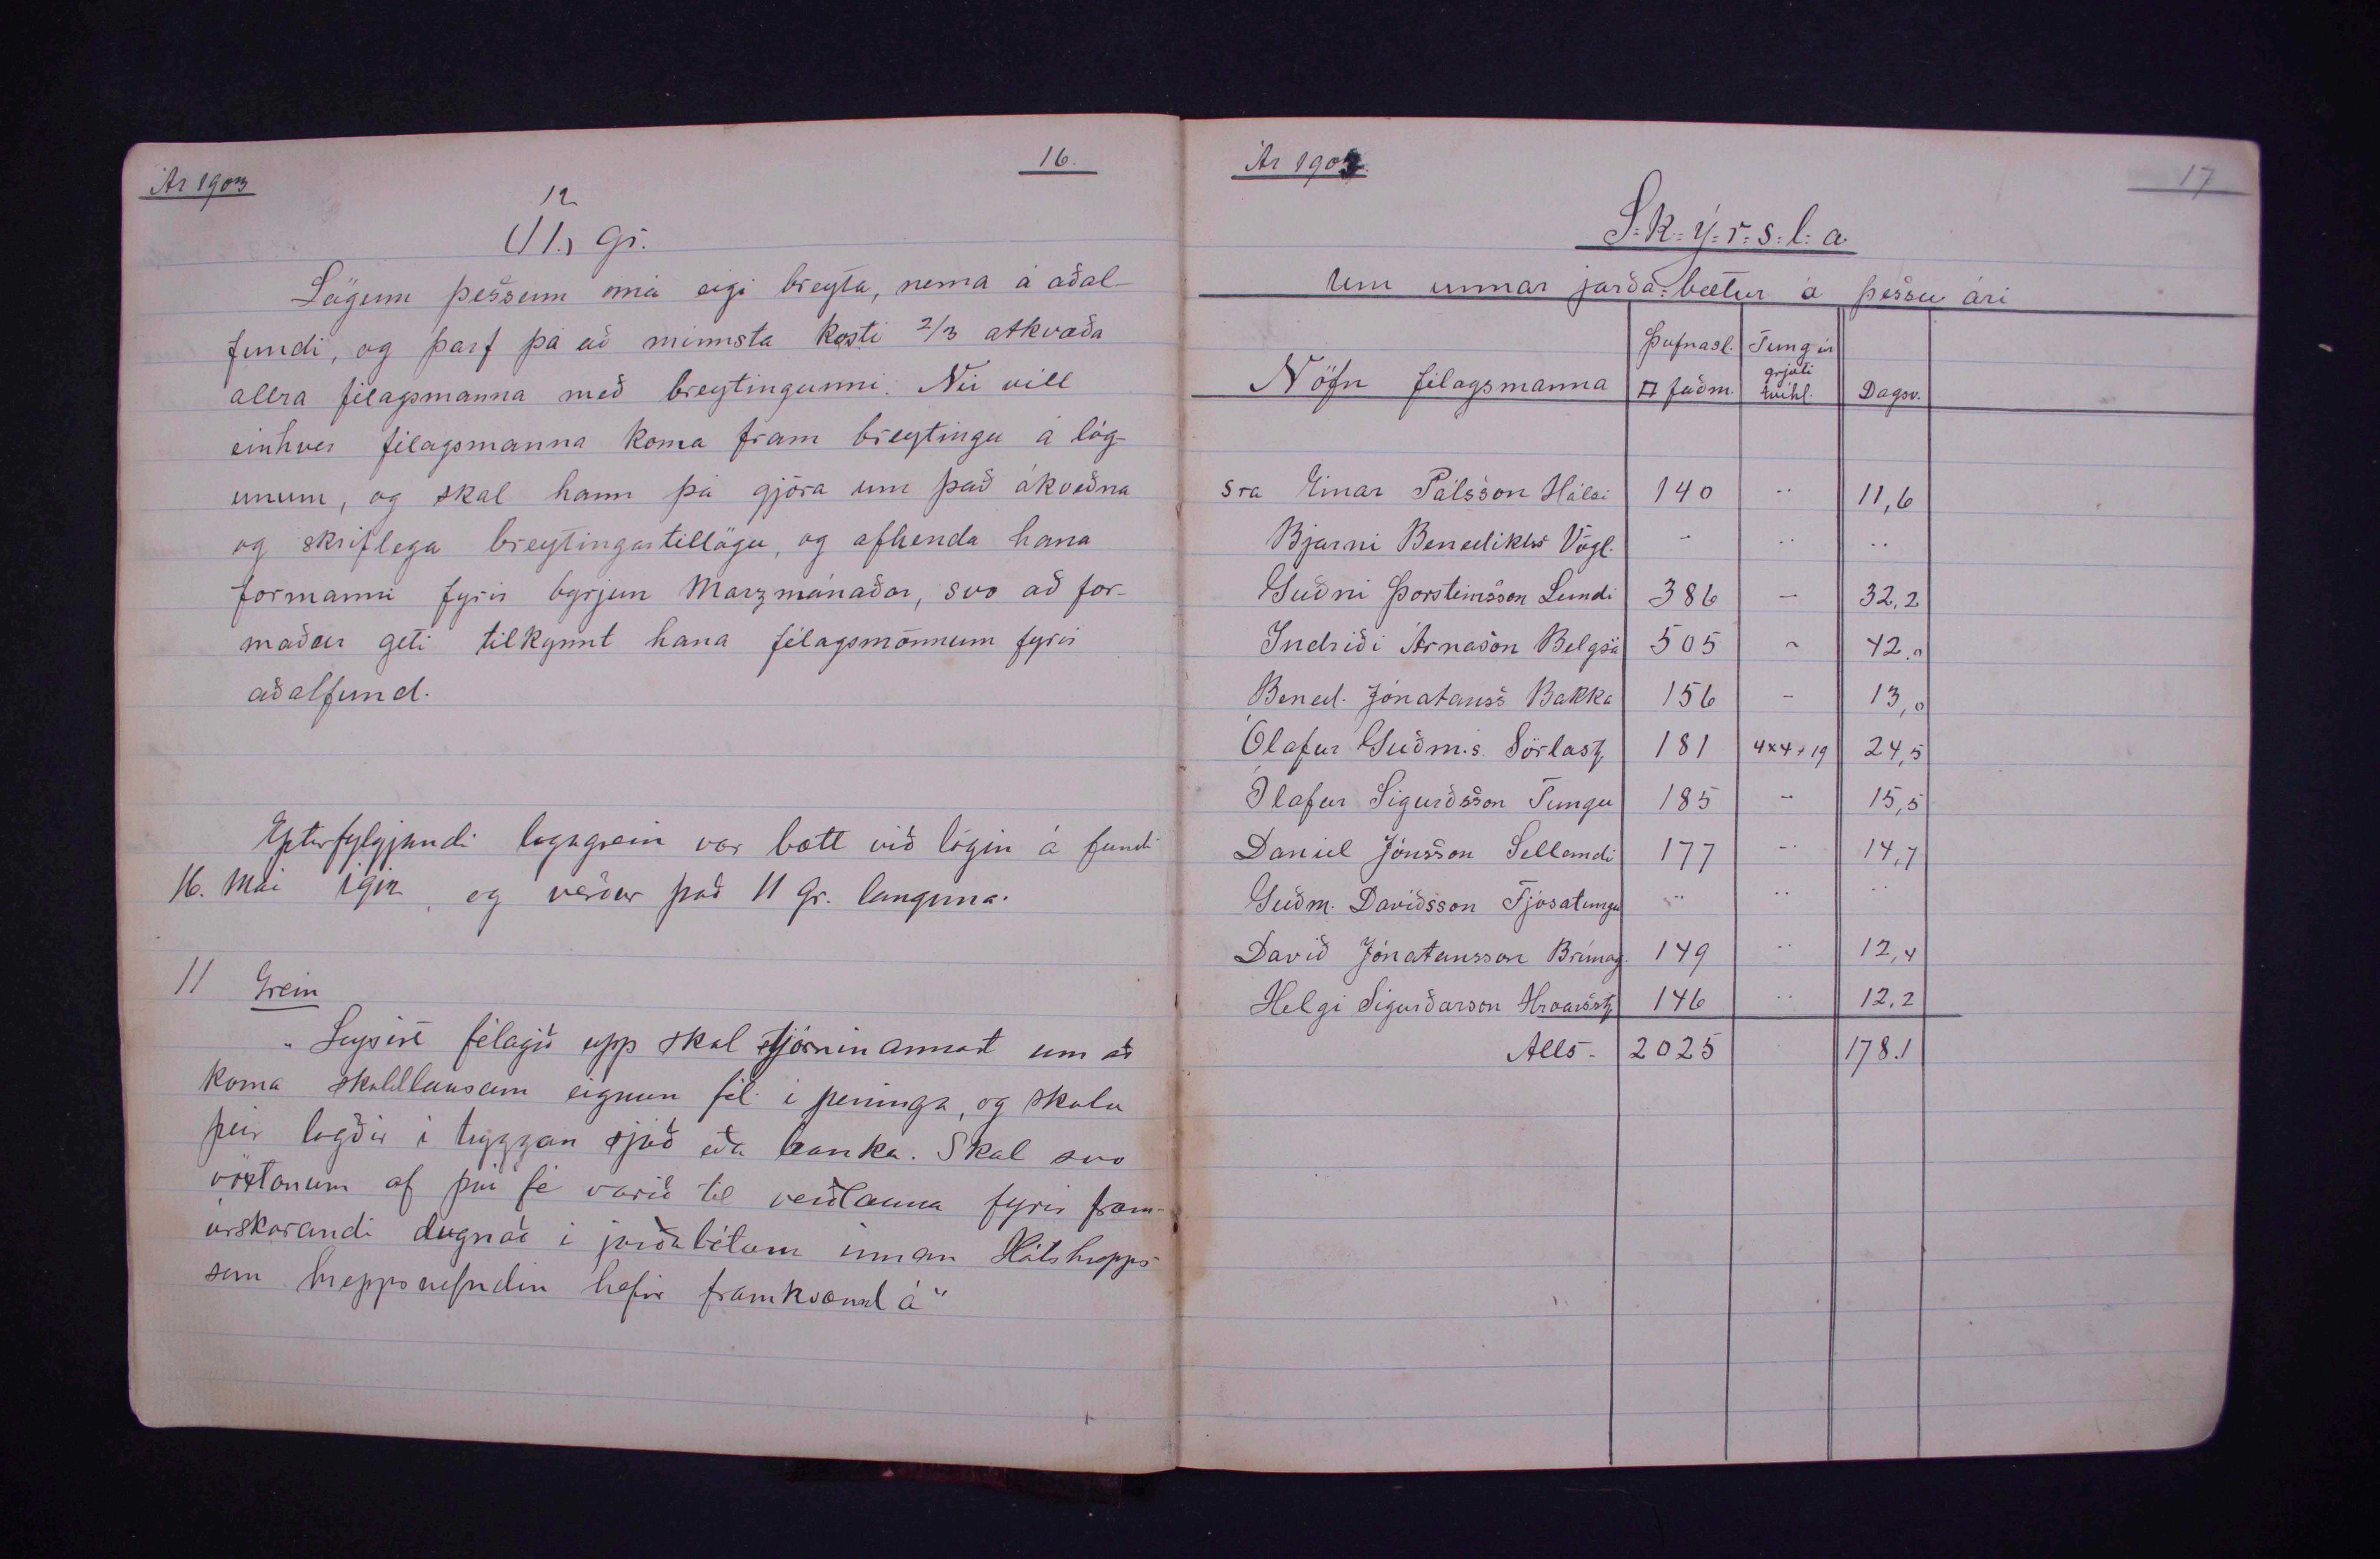 Ár 1903
16.
12
(11.) Gr.
Lögum þessum má eigi breyta, nema á aðal-
fundi, og þarf þá að minnsta kosti 2/3 atkvæða
allra félagsmanna með breytingunni. Nú vill
einhver félagsmanna koma fram breytingu á lög-
unum, og skal hann þá gjöra um það ákveðna
og skriflega breytingartillögu, og afhenda hana
formanni fyrir byrjun Marzmánaðar, svo að for-
maður geti tilkynnt hana félagsmönnum fyrir
aðalfund.
Eptirfylgjandi lagagrein var bætt við lögin á fundi
16. Maí og verður það 11 Gr. laganna.
11 Grein
„Leysist félagið upp skal stjórnin annast um að
koma skuldlausum eignum fél. í peninga, og skulu
þeir lagðir í tryggan sjóð eða banka. Skal svo
vöxtonum af því fé varið til verðlauna fyrir fram-
úrskarandi dugnað í jarðabótum innan Hálshrepps
sem hreppsnefndin hefir framkvæmd á“
Ár 1903.
17
S=k=ý=r=s=l=a
um unnar jarða=bætur á þessu ári
Nöfn félagsmanna | Þúfnasl. □ faðm. | Teng úr grjóti tvíhl. | Dagsv.
Sra Einar Pálsson Hálsi 140 .. 11,6
Bjarni Benedikts Vögl. .. .. ..
Guðni Þorsteinsson Lundi 386 - 32,2
Indriði Árnason Belgsá 505 ~ 42,0
Bened. Jónatanss Bakka 156 - 13,0
Ólafur Guðm.s. Sörlast. 181 4x4x19 24,5
Ólafur Sigurðsson Tungu 185 - 15,5
Daníel Jónsson Sellandi 177 .. 14,7
Guðm. Davíðsson Fjósatungu .. .. ..
Davíð Jónatansson Brúnag. 149 .. 12,4
Helgi Sigurðarson Hróarsst. 146 .. 12,2
Alls - 2025 178.1